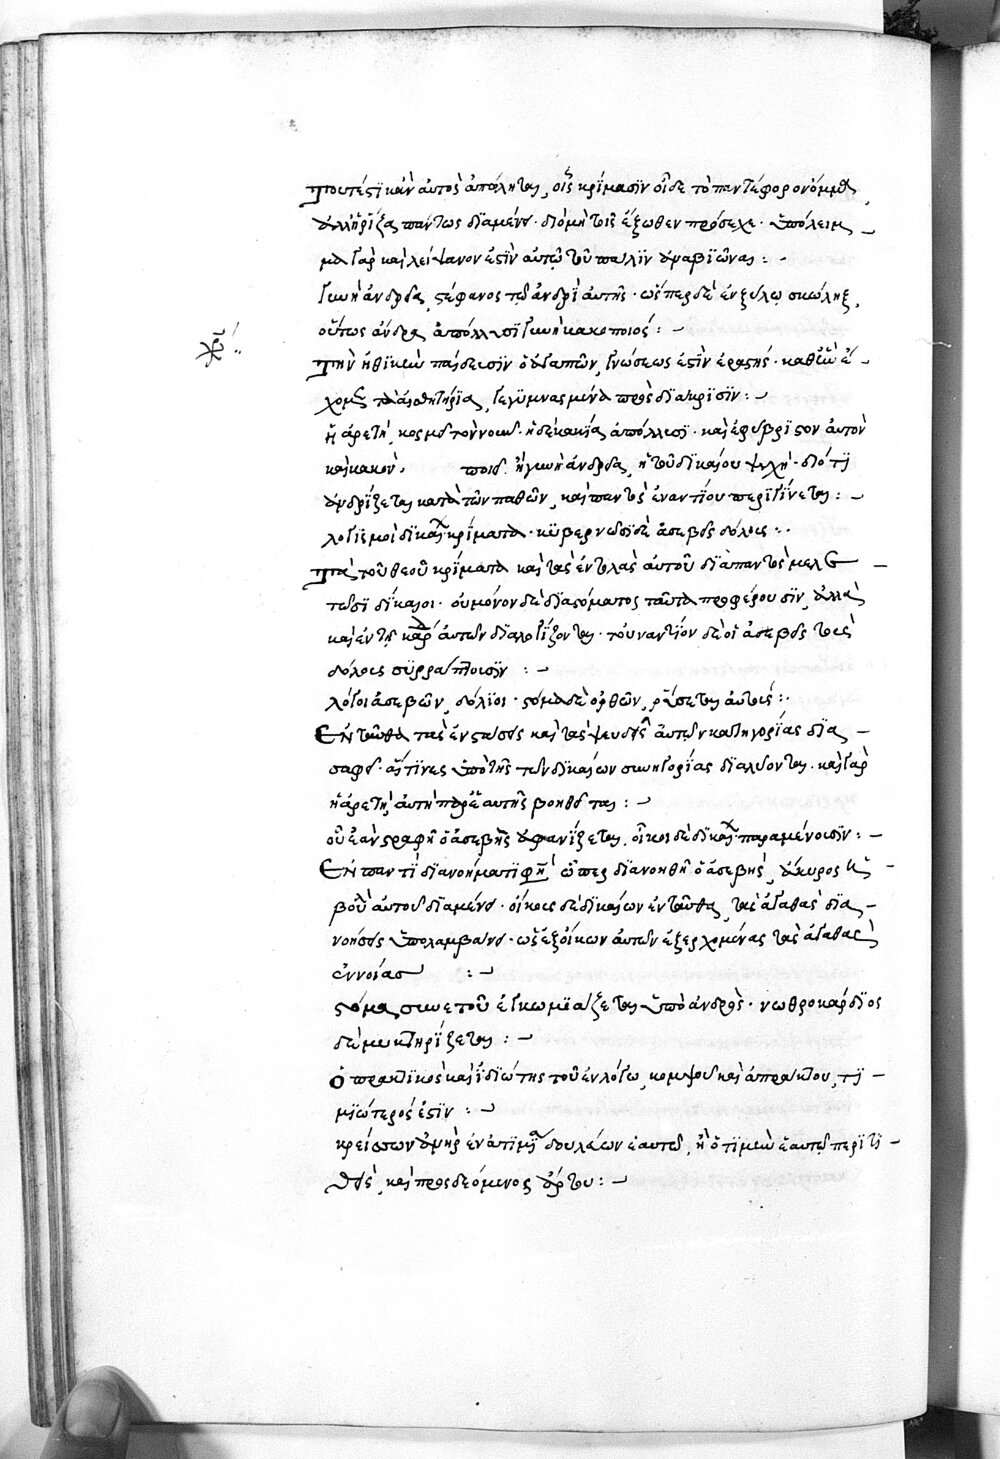 τουτέστι κἂν αὐτὸς ἀπόληται, οἷς κρίμασιν οἶδε τὸ παντέφορον ὄμμα,
ἀλλ' ἡ ῥίζα πάντως διαμένει· διὸ μὴ τοῖς ἔξωθεν πρόσεχε· ὑπόλειμ
μα γὰρ καὶ λείψανον ἐστὶν αὐτῷ τοῦ πάλιν ἀναβιῶναι:
γυνὴ ἀνδρεία, στέφανος τῷ ἀνδρὶ αὐτῆς· ὥσπερ δὲ ἐν ξύλῳ σκώληξ,
οὕτως ἄνδρα ἀπόλλυσι γυνὴ κακοποιός:
Τὴν ἠθικὴν παίδευσιν ὁ ἀγαπῶν, γνώσεως ἐστὶν ἐραστής· καθ' ἣν ἔ
χομεν τὰ αἰσθητήρια γεγυμνασμένα πρὸς διάκρισιν:
ἡ ἀρετὴ κοσμεῖ τὸν νοῦν· ἡ δὲ κακία ἀπόλλυσι· καὶ ἐφυβρίστον αὐτὸν
καὶ κακὸν ποιεῖ. ἢ γυνὴ ἀνδρεία, ἡ τοῦ δικαίου ψυχή· διότι
ἀνδρίζεται κατὰ τῶν παθῶν, καὶ παντὸς ἐναντίου περιγίνεται:
λογισμοὶ δικαίων κρίματα· κυβερνῶσι δὲ ἀσεβεῖς δόλους:
Τὰ τοῦ θεοῦ κρίματα καὶ τὰς ἐντολὰς αὐτοῦ διαπαντὸς μελε
τῶσι δίκαιοι· οὐ μόνον δὲ διὰ στόματος ταῦτα προφέρουσιν, ἀλλὰ
καὶ ἐν τῇ καρδίᾳ αὐτῶν διαλογίζονται· τουναντίον δὲ οἱ ἀσεβεῖς τοὺς
δόλους συρράπτουσιν:
λόγοι ἀσεβῶν, δόλιοι· στόμα δὲ ὀρθῶν, ῥύσεται αὐτούς:
Ἐνταῦθα τὰς ἐνστάσεις καὶ τὰς ψευδεῖς αὐτῶν κατηγορίας δια
σαφεῖ· αἵτινες ὑπὸ τῆς τῶν δικαίων συνηγορίας διαλύονται· καὶ γὰρ
ἡ ἀρετὴ αὐτὴ παρ' ἑαυτῆς βοηθεῖται:
οὗ ἐὰν στραφῇ ὁ ἀσεβὴς ἀφανίζεται, οἶκοι δὲ δικαίων παραμένουσιν:
Ἐν παντὶ διανοήματί φησιν ὅπερ διανοηθῇ ὁ ἀσεβής, ἄκυρος ἡ
βουλὴ αὐτοῦ διαμένει· οἴκους δὲ δικαίων ἐνταῦθα, τὰς ἀγαθὰς δια
νοήσεις ὑπολαμβάνει· ὡς ἐξ οἴκων αὐτῶν ἐξερχομένας τὰς ἀγαθὰς
ἐννοίας:
στόμα συνετοῦ ἐγκωμιάζεται ὑπὸ ἀνδρός· νωθροκάρδιος
δὲ μυκτηρίζεται:
Ὁ πρακτικὸς καὶ ἰδιώτης τοῦ ἐν λόγῳ κομψοῦ καὶ ἀπράκτου, τι
μιώτερός ἐστιν:
κρείσσων ἀνὴρ ἐν ἀτιμίᾳ δουλεύων ἑαυτῷ, ἢ ὁ τιμὴν ἑαυτῷ περιτι
θείς, καὶ προσδεόμενος ἄρτου: